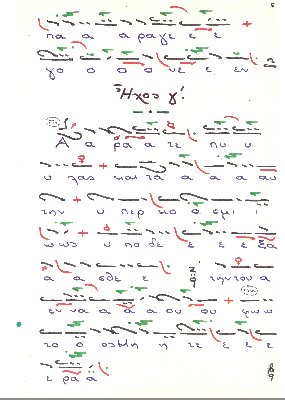 πα α α ραγε ε ε
γο ο ο ο νε ε εν
Ἦχος γ΄.
Α α ρα α τε πυ υ
υ λας και τα α α α αυ
την υ περ κο ο σμι ι
υ πο δε ε ε ε ξα
α α σθε ε την του α
εν να α α α ου
το ο οσθη η τε ε ε ε
ε ρα α